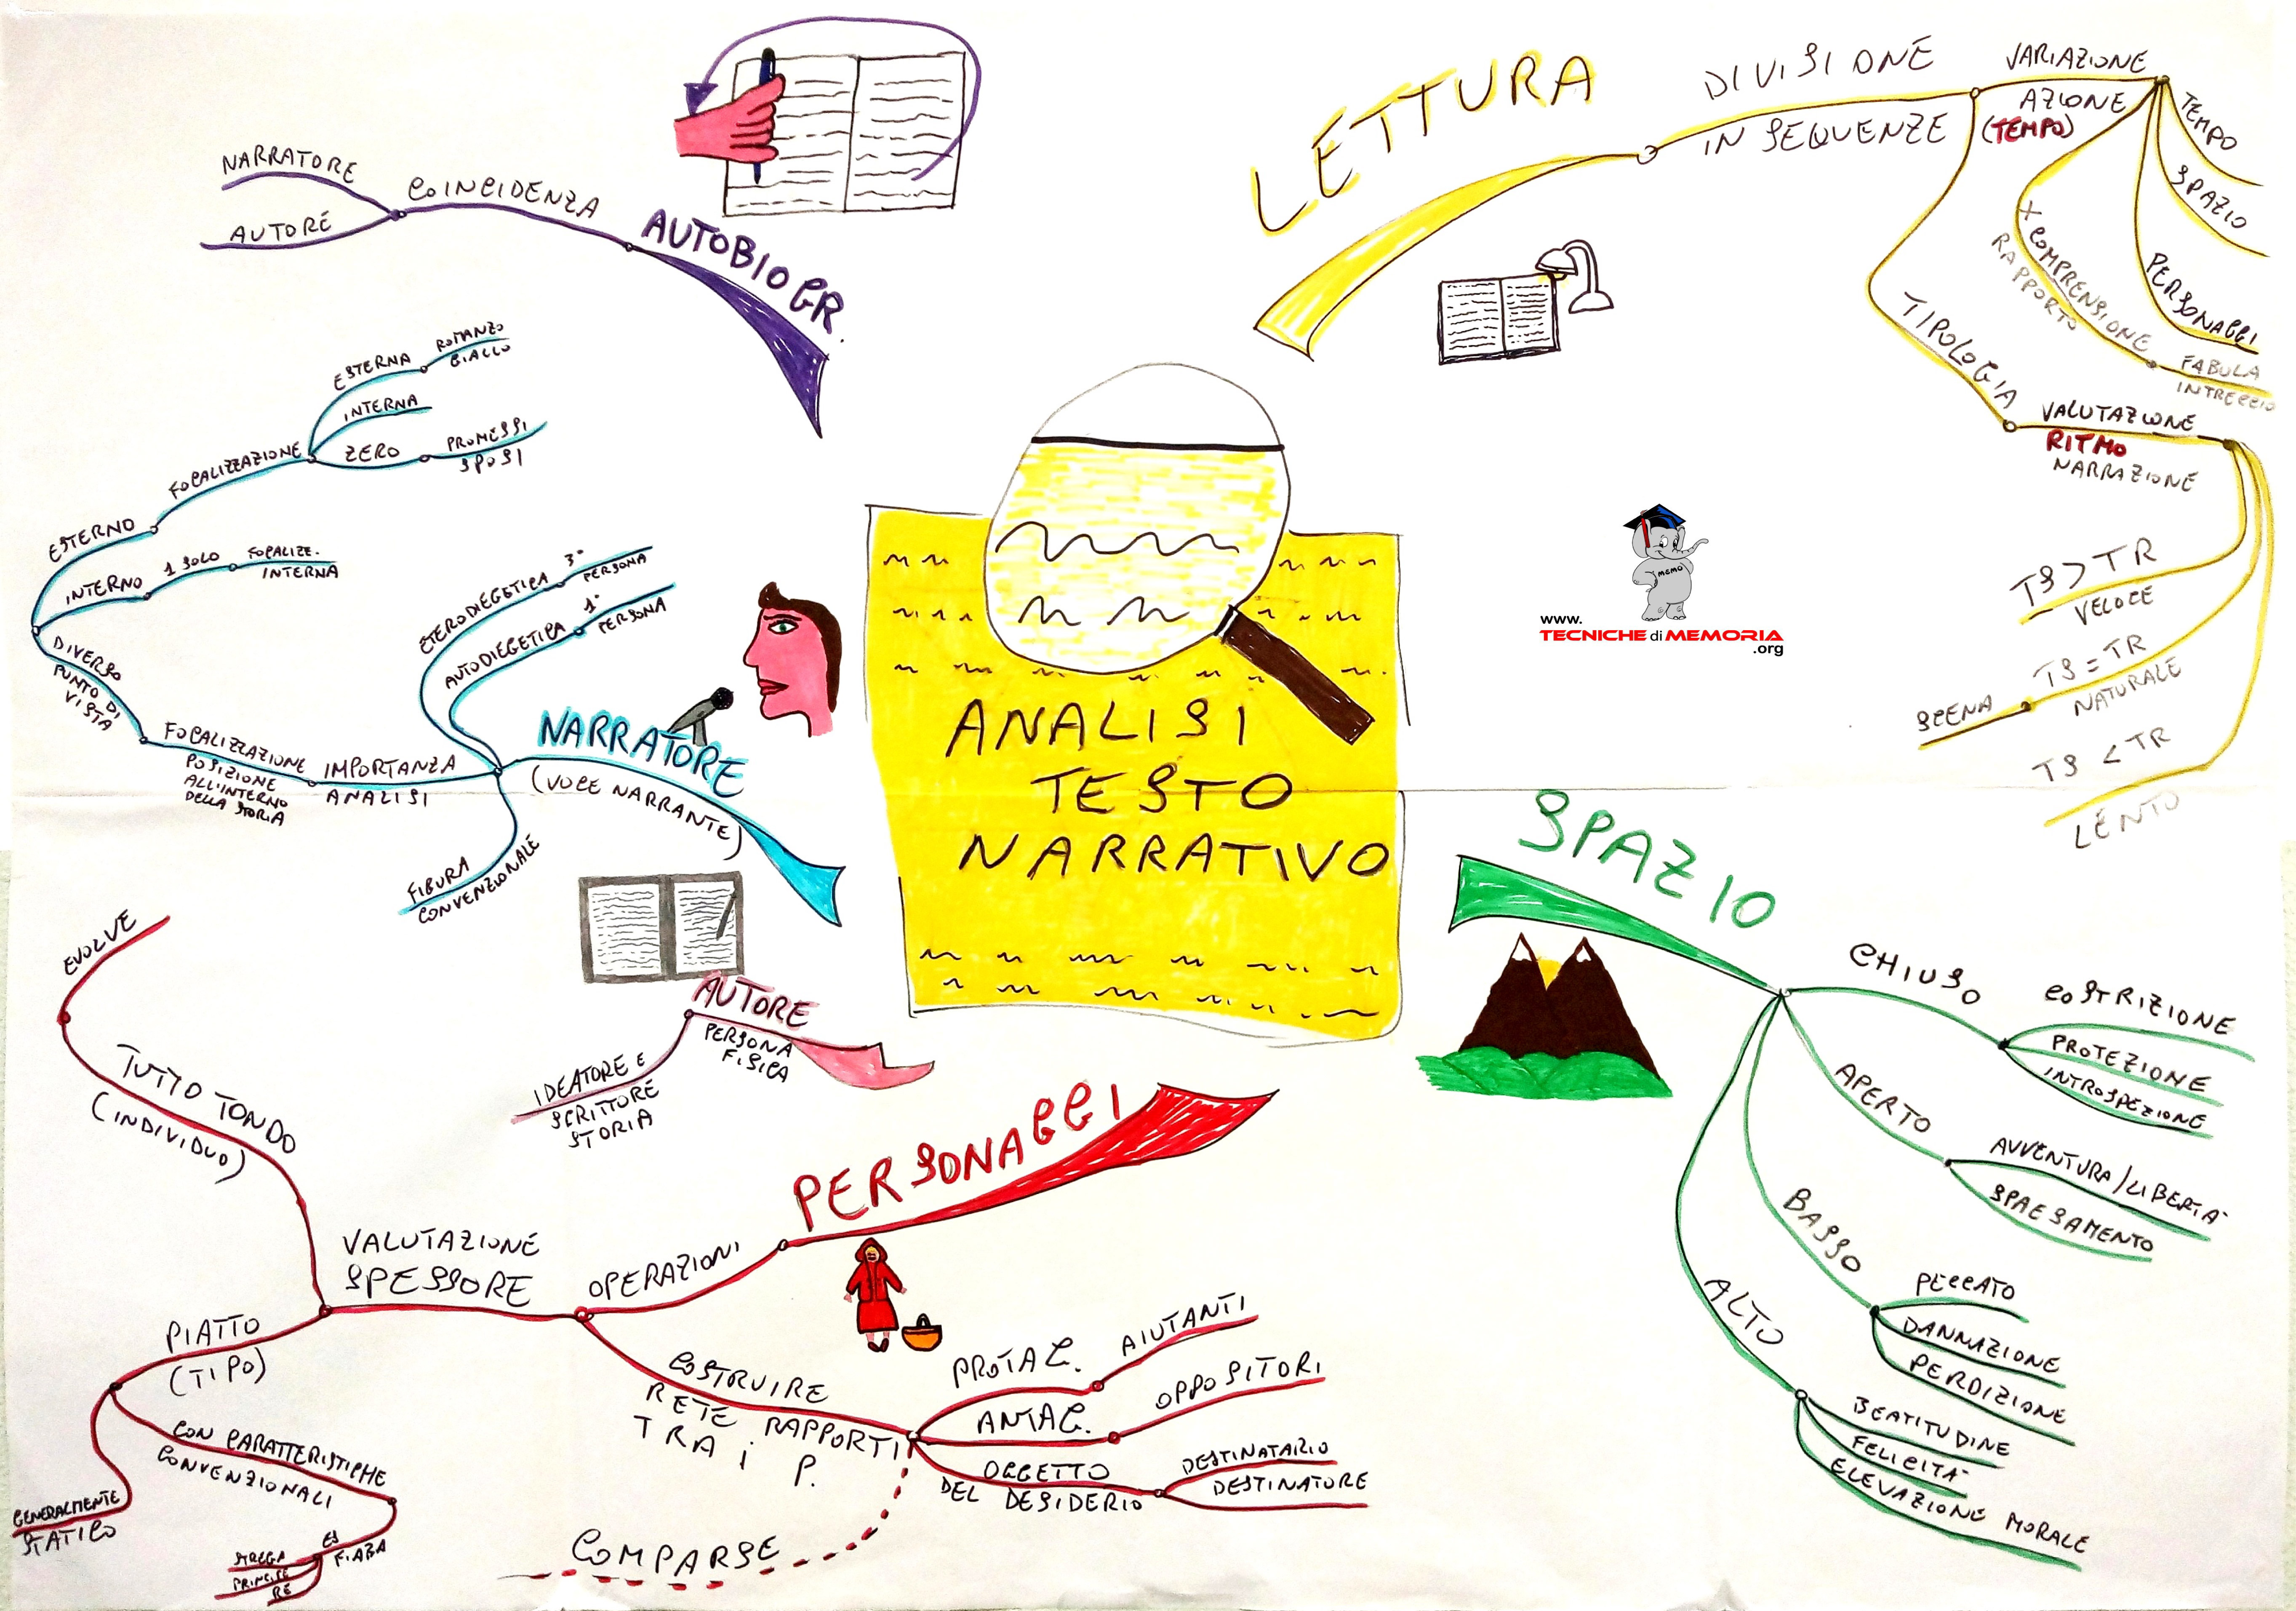 ANALISI
TESTO
NARRATIVO
LETTURA
DIVISIONE
IN SEQUENZE
VARIAZIONE
AZIONE
(TEMPO)
TEMPO
SPAZIO
PERSONAGGI
+ COMPRENSIONE
RAPPORTO
FABULA
INTRECCIO
TIPOLOGIA
VALUTAZIONE
RITMO
NARRAZIONE
TS > TR
VELOCE
TS = TR
NATURALE
SCENA
TS < TR
LENTO
www.
TECNICHE di MEMORIA
.org
MEMO
SPAZIO
CHIUSO
COSTRIZIONE
PROTEZIONE
INTROSPEZIONE
APERTO
AVVENTURA/LIBERTA'
SPAESAMENTO
BASSO
PECCATO
DANNAZIONE
PERDIZIONE
ALTO
BEATITUDINE
FELICITA'
ELEVAZIONE MORALE
PERSONAGGI
OPERAZIONI
VALUTAZIONE
SPESSORE
TUTTO TONDO
(INDIVIDUO)
EVOLVE
PIATTO
(TIPO)
GENERALMENTE
STATICO
CON CARATTERISTICHE
CONVENZIONALI
ES
FIABA
STREGA
PRINCIPE
RE
COSTRUIRE
RETE RAPPORTI
TRA i P.
PROTAG.
AIUTANTI
ANTAG.
OPPOSITORI
OGGETTO
DEL DESIDERIO
DESTINATARIO
DESTINATORE
COMPARSE
AUTORE
PERSONA
FISICA
IDEATORE E
SCRITTORE
STORIA
NARRATORE
(VOCE NARRANTE)
ETERODIEGETICA
3°
PERSONA
AUTODIEGETICA
1°
PERSONA
FIGURA
CONVENZIONALE
IMPORTANZA
ANALISI
FOCALIZZAZIONE
POSIZIONE
ALL'INTERNO
DELLA STORIA
DIVERSO
PUNTO DI
VISTA
INTERNO
1 SOLO
FOCALIZZ.
INTERNA
ESTERNO
FOCALIZZAZIONE
ESTERNA
ROMANZO
GIALLO
INTERNA
ZERO
PROMESSI
SPOSI
AUTOBIOGR.
COINCIDENZA
NARRATORE
AUTORE